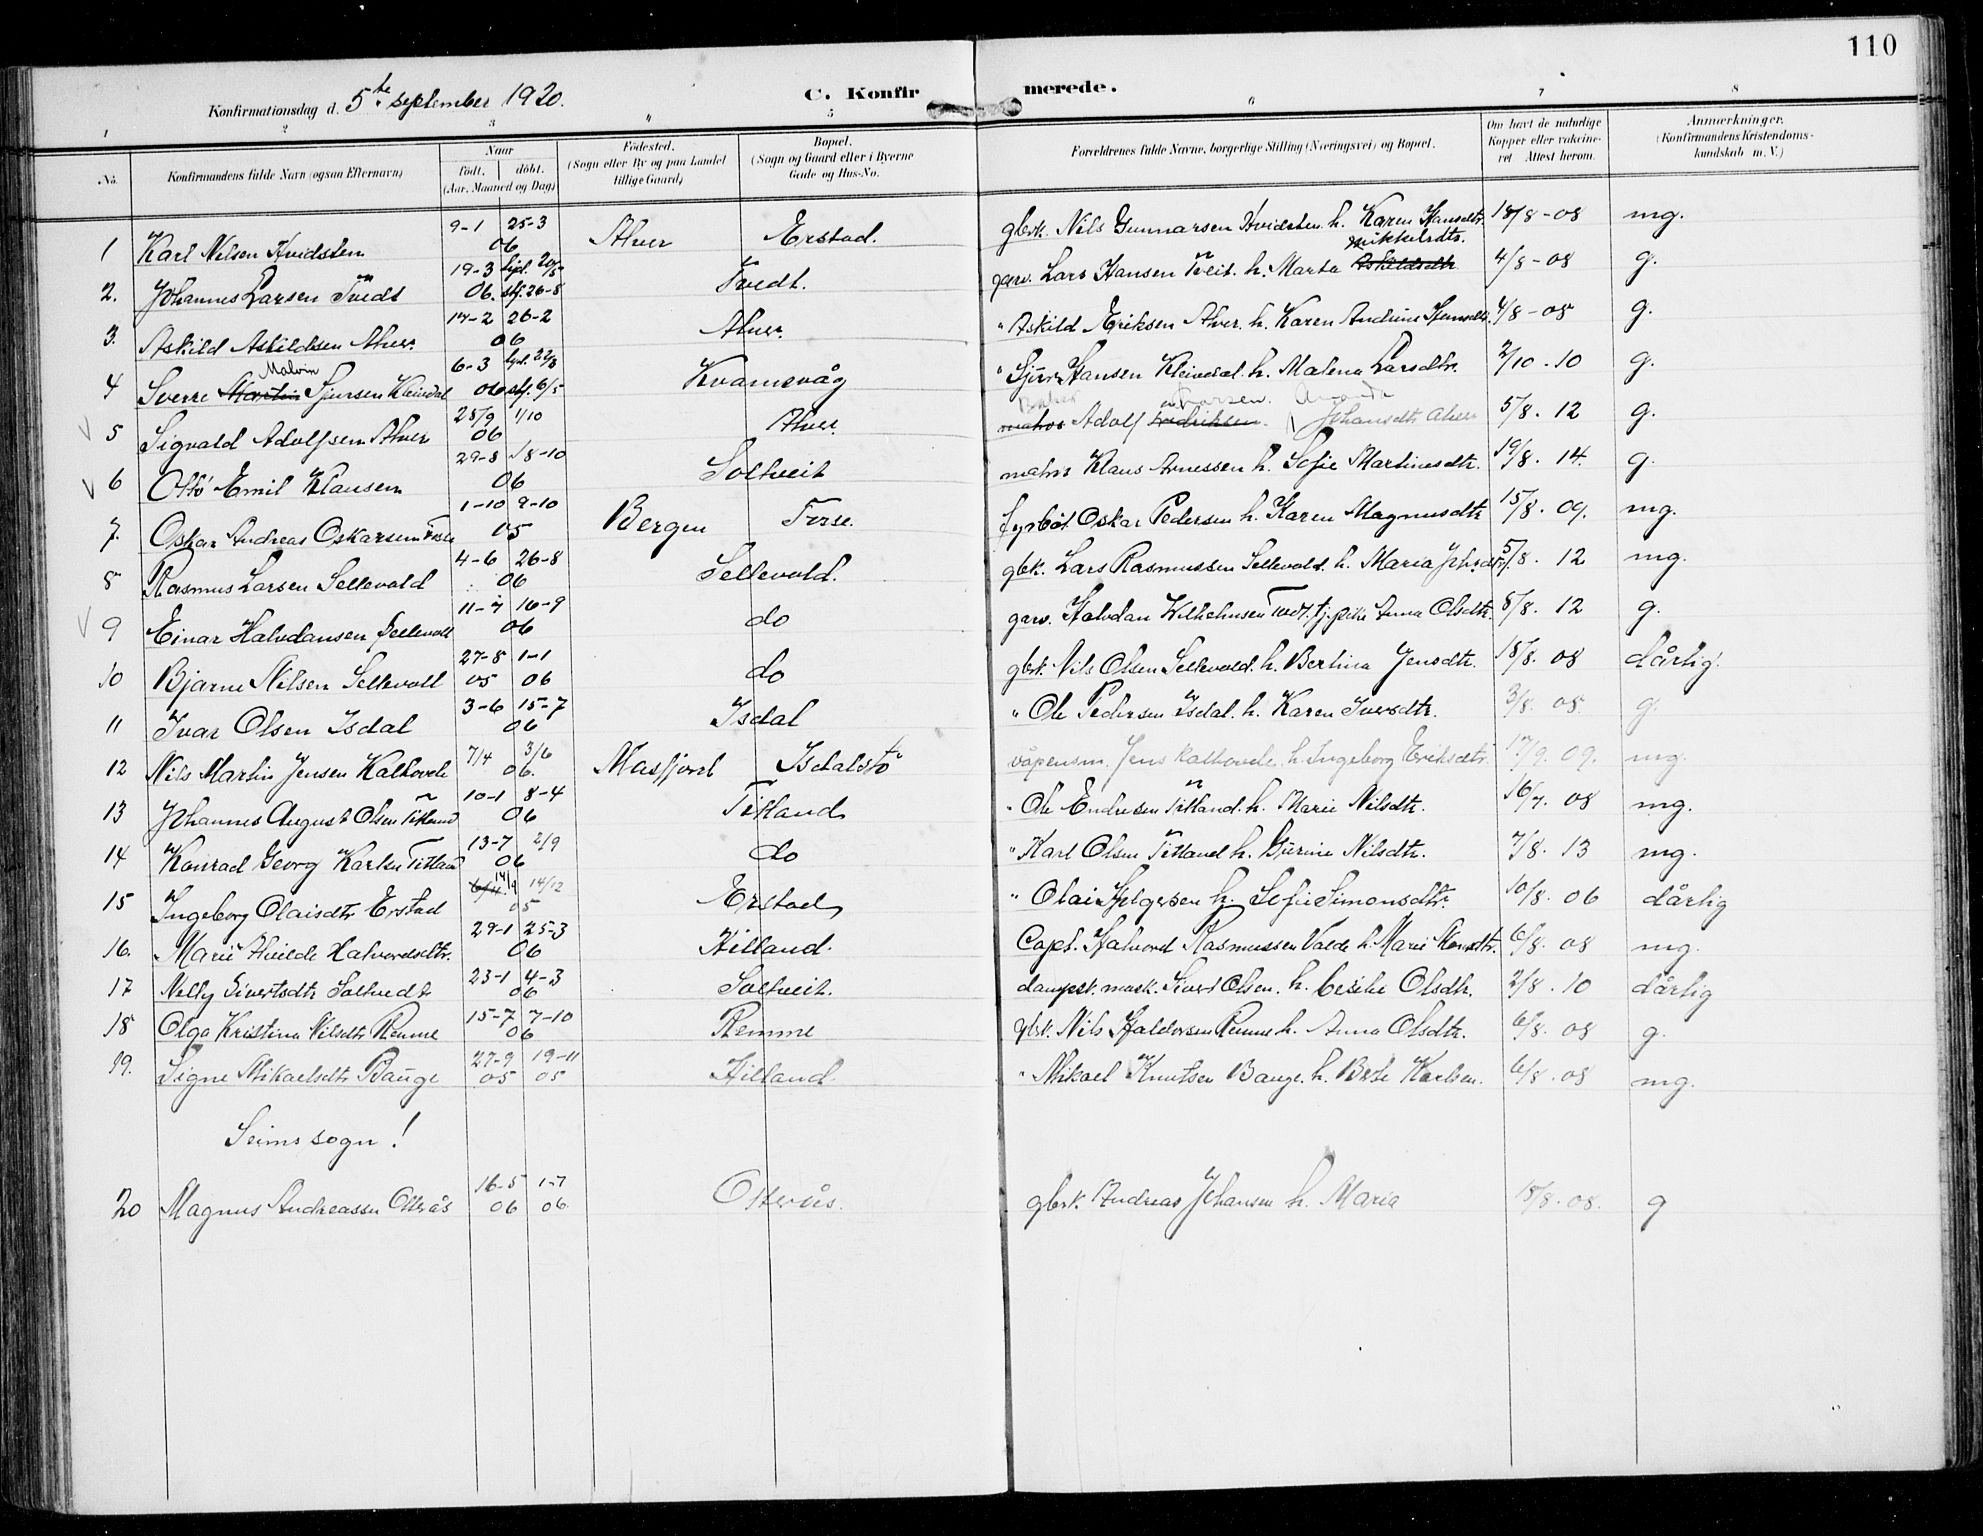 110
Konfirmationsdag d. 5te september 1920. C. Konfirmerede.
1 2 3 4 5 6 7 8
No. Konfirmandens fulde Navn (ogsaa Efternavn) Naar født. døbt. (Aar, Maaned og Dag) Fødested. (Sogn eller By og paa Landet tillige Gaard) Bopæl. (Sogn og Gaard eller i Byerne Gade og Hus-No. Forældrenes fulde Navne, borgerlige Stilling (Næringsvei) og Bopæl. Om havt de naturlige Kopper eller vakcineret Attest herom. Anmærkninger. (Konfirmandens Kristendomskundskab m. V.)
1 Karl Nilsen Hvidsten 9-1 25-3 06 Alver Erstad. gbrk. Nils Gunnarsen Hvidsten h. Karen Hansdtr. 18/8-08 mg.
2. Johannes Larsen Tvedt 19-3 06. 26-8 Tvedt. garv. Lars Hansen Tveit. h. Marta Askildsdtr. Mikkelsdtr. 4/8-08 g.
3. Askild Askildsen Alver. 17-2 26-2 06 Alver. " Askild Eriksen Alver. h. Karen Andrine 4/8-08 g.
4 Sverre Martin Malvin Sjursen Kleivdal 6-3 06 6/5 Kvamsvåg " Sjur Hansen Kleivdal. h. Malena Larsdtr. 2/10.10 g.
5 Sigvald Adolfsen Alver 25/9 1/10 06 Alver. matros Baker Adolf Fredriksen Amanda Johansdtr Alver 5/8.12 g.
6 Otto Emil Klausen 29-8 18-10 06 Soltveit matros Klaus Arnessen h. Sofie Martinusdtr. 19/8.14. g.
7. Oskar Andreas Oskarsen Fosse 1-10 9-10 05 Bergen Fosse. fyrbøt. Oskar Pedersen h. Karen Magnusdtr 15/8.09. mg.
8 Rasmus Larsen Sellevold 4-6 26-8 06 Sellevold. gbk. Lars Rasmussen Sellevold. h. Maria 5/8.12 mg.
9 Einar Halvdansen Sellevoll 11-7 16-9 06 do garv. Halvdan Wilhelmsen Tvedt. tj.pike Anna Olsdtr. 8/8.12 g.
10 Bjarne Nilsen Sellevoll 27-8 05 1-1 06 do gbk. Nils Olsen Sellevold. h. Bertina Jensdtr. 18/8.08 dårlig.
11 Ivar Olsen Isdal 3-6 15-7 06 Isdal " Ole Pedersen Isdal. h. Karen Iversdtr. 3/8.08 g.
12 Nils Martin Jensen Kalhovde 7/4 3/6 06. Masfjord Isdalstø våpensm. Jens Kalhovde. h. Ingeborg Eriksdtr. 17/9.09. mg.
13 Johannes August Olsen Titland 10-1 8-4 06 Titland " Ole Endresen Titland. h. Marie Nilsdtr. 16/7.08 mg.
14 Konrad Georg Karlsen Titland 13-7 2/9 06 do " Karl Olsen Titland h. Gurine Nilsdtr. 7/8.13 mg.
15 Ingeborg Olaisdtr Erstad 14/9 14/12 05 Erstad " Olai Helgesen h. Sofie Simonsdtr. 10/8.06 dårlig
16. Marie Alvilde Halvordsdtr. 29-1 25-3 06 Hilland. Capt. Halvord Rasmussen Valde h. Marie 6/8.08 mg.
17 Nelly Sivertsdtr Soltvedt 23-1 4-3 06 Soltveit. dampsk. mask. Sivert Olsen. h. Cecilie Olsdtr. 2/8.10 dårlig
18 Olga Kristina Nilsdtr Remme 15-7 7-10 06 Remme gbk. Nils Haldorsen Remme h. Anna Olsdtr. 6/8.08 g.
19. Signe Mikaelsdtr Bauge 27-9 05 19-11 05 Hilland. " Mikael Knutsen Bauge. h. Berte Karlsen. 6/8.08 mg.
Seims sogn!
20 Magnus Andreassen Otterås 16-5 06 1-7 06 Otterås. gbrk. Andreas Johansen h. Maria 18/8.08. g